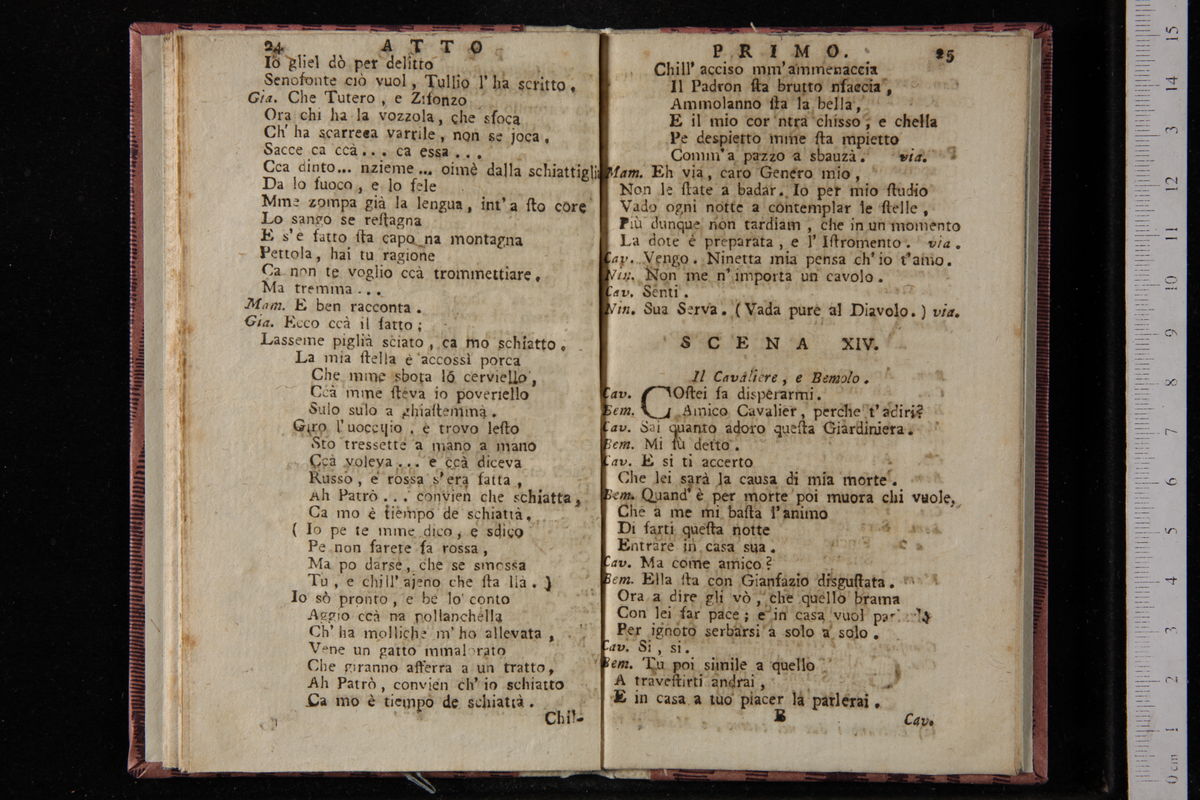 24 ATTO
Io gliel dò per delitto
Senofonte ciò vuol, Tullio l'ha scritto.
Gia. Che Tutero, e Zifonzo
Ora chi ha la vozzola, che sfoca
Ch' ha scarreca varrile, non se joca.
Sacce ca ccà... ca essa...
Cca dinto... nzieme... oimè dalla schiattiglia
Da lo fuoco, e lo fele
Mme zompa già la lengua, int'a ſto core
Lo sango se reſtagna
E s'e fatto ſta capo na montagna
Pettola, hai tu ragione
Ca non te voglio ccà trommettiare.
Ma tremma...
Mam. E ben racconta.
Gia. Ecco ccà il fatto;
Lasseme piglià sciato, ca mo schiatto.
La mia ſtella è accossì porca
Che mme sbota lô cerviello,
Ccà mme ſteva io poveriello
Sulo sulo a ghiaſtemma.
Giro l'uocchio, e trovo leſto
Sto tressette a mano a mano
Ccà voleva... e ccà diceva
Russo, e rossa s'era fatta,
Ah Patrò... convien che schiatta,
Ca mo è tiempo de schiattà.
( Io pe te mme dico, e sdico
Pe non farete fa rossa,
Ma po darse, che se smossa
Tu, e chill' ajeno che ſta llà. )
Io sò pronto, e be lo conto
Aggio ccà na pollanchella
Ch' ha molliche m'ho allevata,
Vene un gatto mmalorato
Che giranno afferra a un tratto,
Ah Patrò, convien ch' io schiatto
Ca mo è tiempo de schiattà.
Chil-
PRIMO. 25
Chill' acciso mm'ammenaccia
Il Padron ſta brutto nfaccia,
Ammolanno ſta la bella,
E il mio cor ntra chisso, e chella
Pe despietto mme ſta mpietto
Comm'a pazzo a sbauzà. via.
Mam. Eh via, caro Genero mio,
Non le ſtate a badar. Io per mio ſtudio
Vado ogni notte a contemplar le ſtelle,
Più dunque non tardiam, che in un momento
La dote è preparata, e l' Iſtromento. via.
Cav. Vengo. Ninetta mia pensa ch' io t'amo.
Nin. Non me n' importa un cavolo.
Cav. Senti.
Nin. Sua Serva. (Vada pure al Diavolo.) via.
SCENA XIV.
Il Cavaliere, e Bemolo.
Cav. COſtei fa disperarmi.
Bem. Amico Cavalier, perche t'adiri?
Cav. Sai quanto adoro queſta Giardiniera.
Bem. Mi fù detto.
Cav. E si ti accerto
Che lei sarà la causa di mia morte.
Bem. Quand' è per morte poi muora chi vuole,
Che a me mi baſta l'animo
Di farti queſta notte
Entrare in casa sua.
Cav. Ma come amico?
Bem. Ella ſta con Gianfazio disguſtata.
Ora a dire gli vò, che quello brama
Con lei far pace; e in casa vuol
Per ignoto serbarsi a solo a solo.
Cav. Si, si.
Bem. Tu poi simile a quello
A traveſtirti andrai,
E in casa a tuo piacer la parlerai.
B Cav.